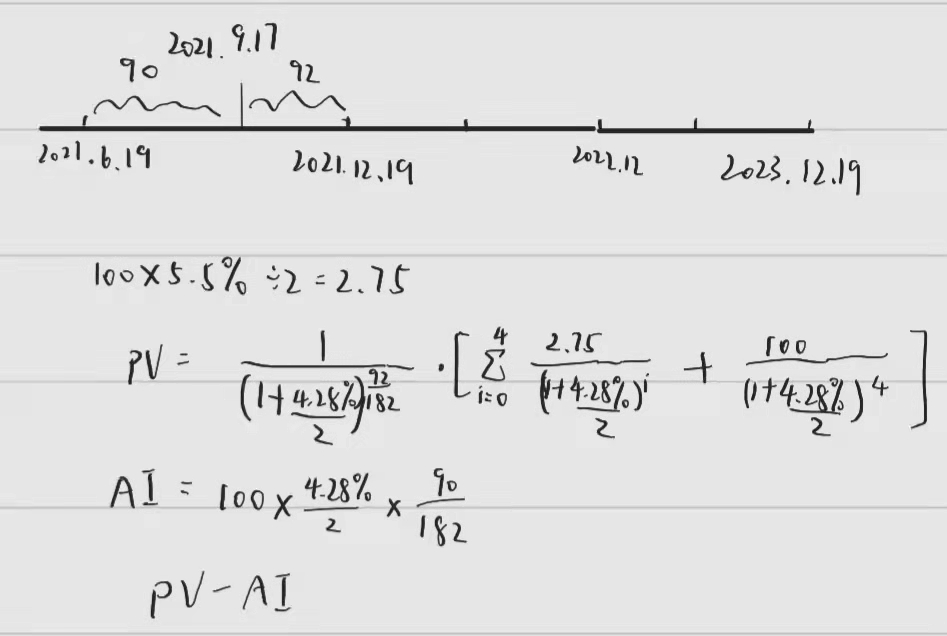 2021.9.17
90 92
2021.6.19 2021.12.19 2022.12 2023.12.19
100×5.5%÷2=2.75
PV = 1/(1+4.28%/2)^(92/182) · [ Σ_{i=0}^{4} 2.75/(1+4.28%/2)^i + 100/(1+4.28%/2)^4 ]
AI = 100 × 4.28%/2 × 90/182
PV-AI